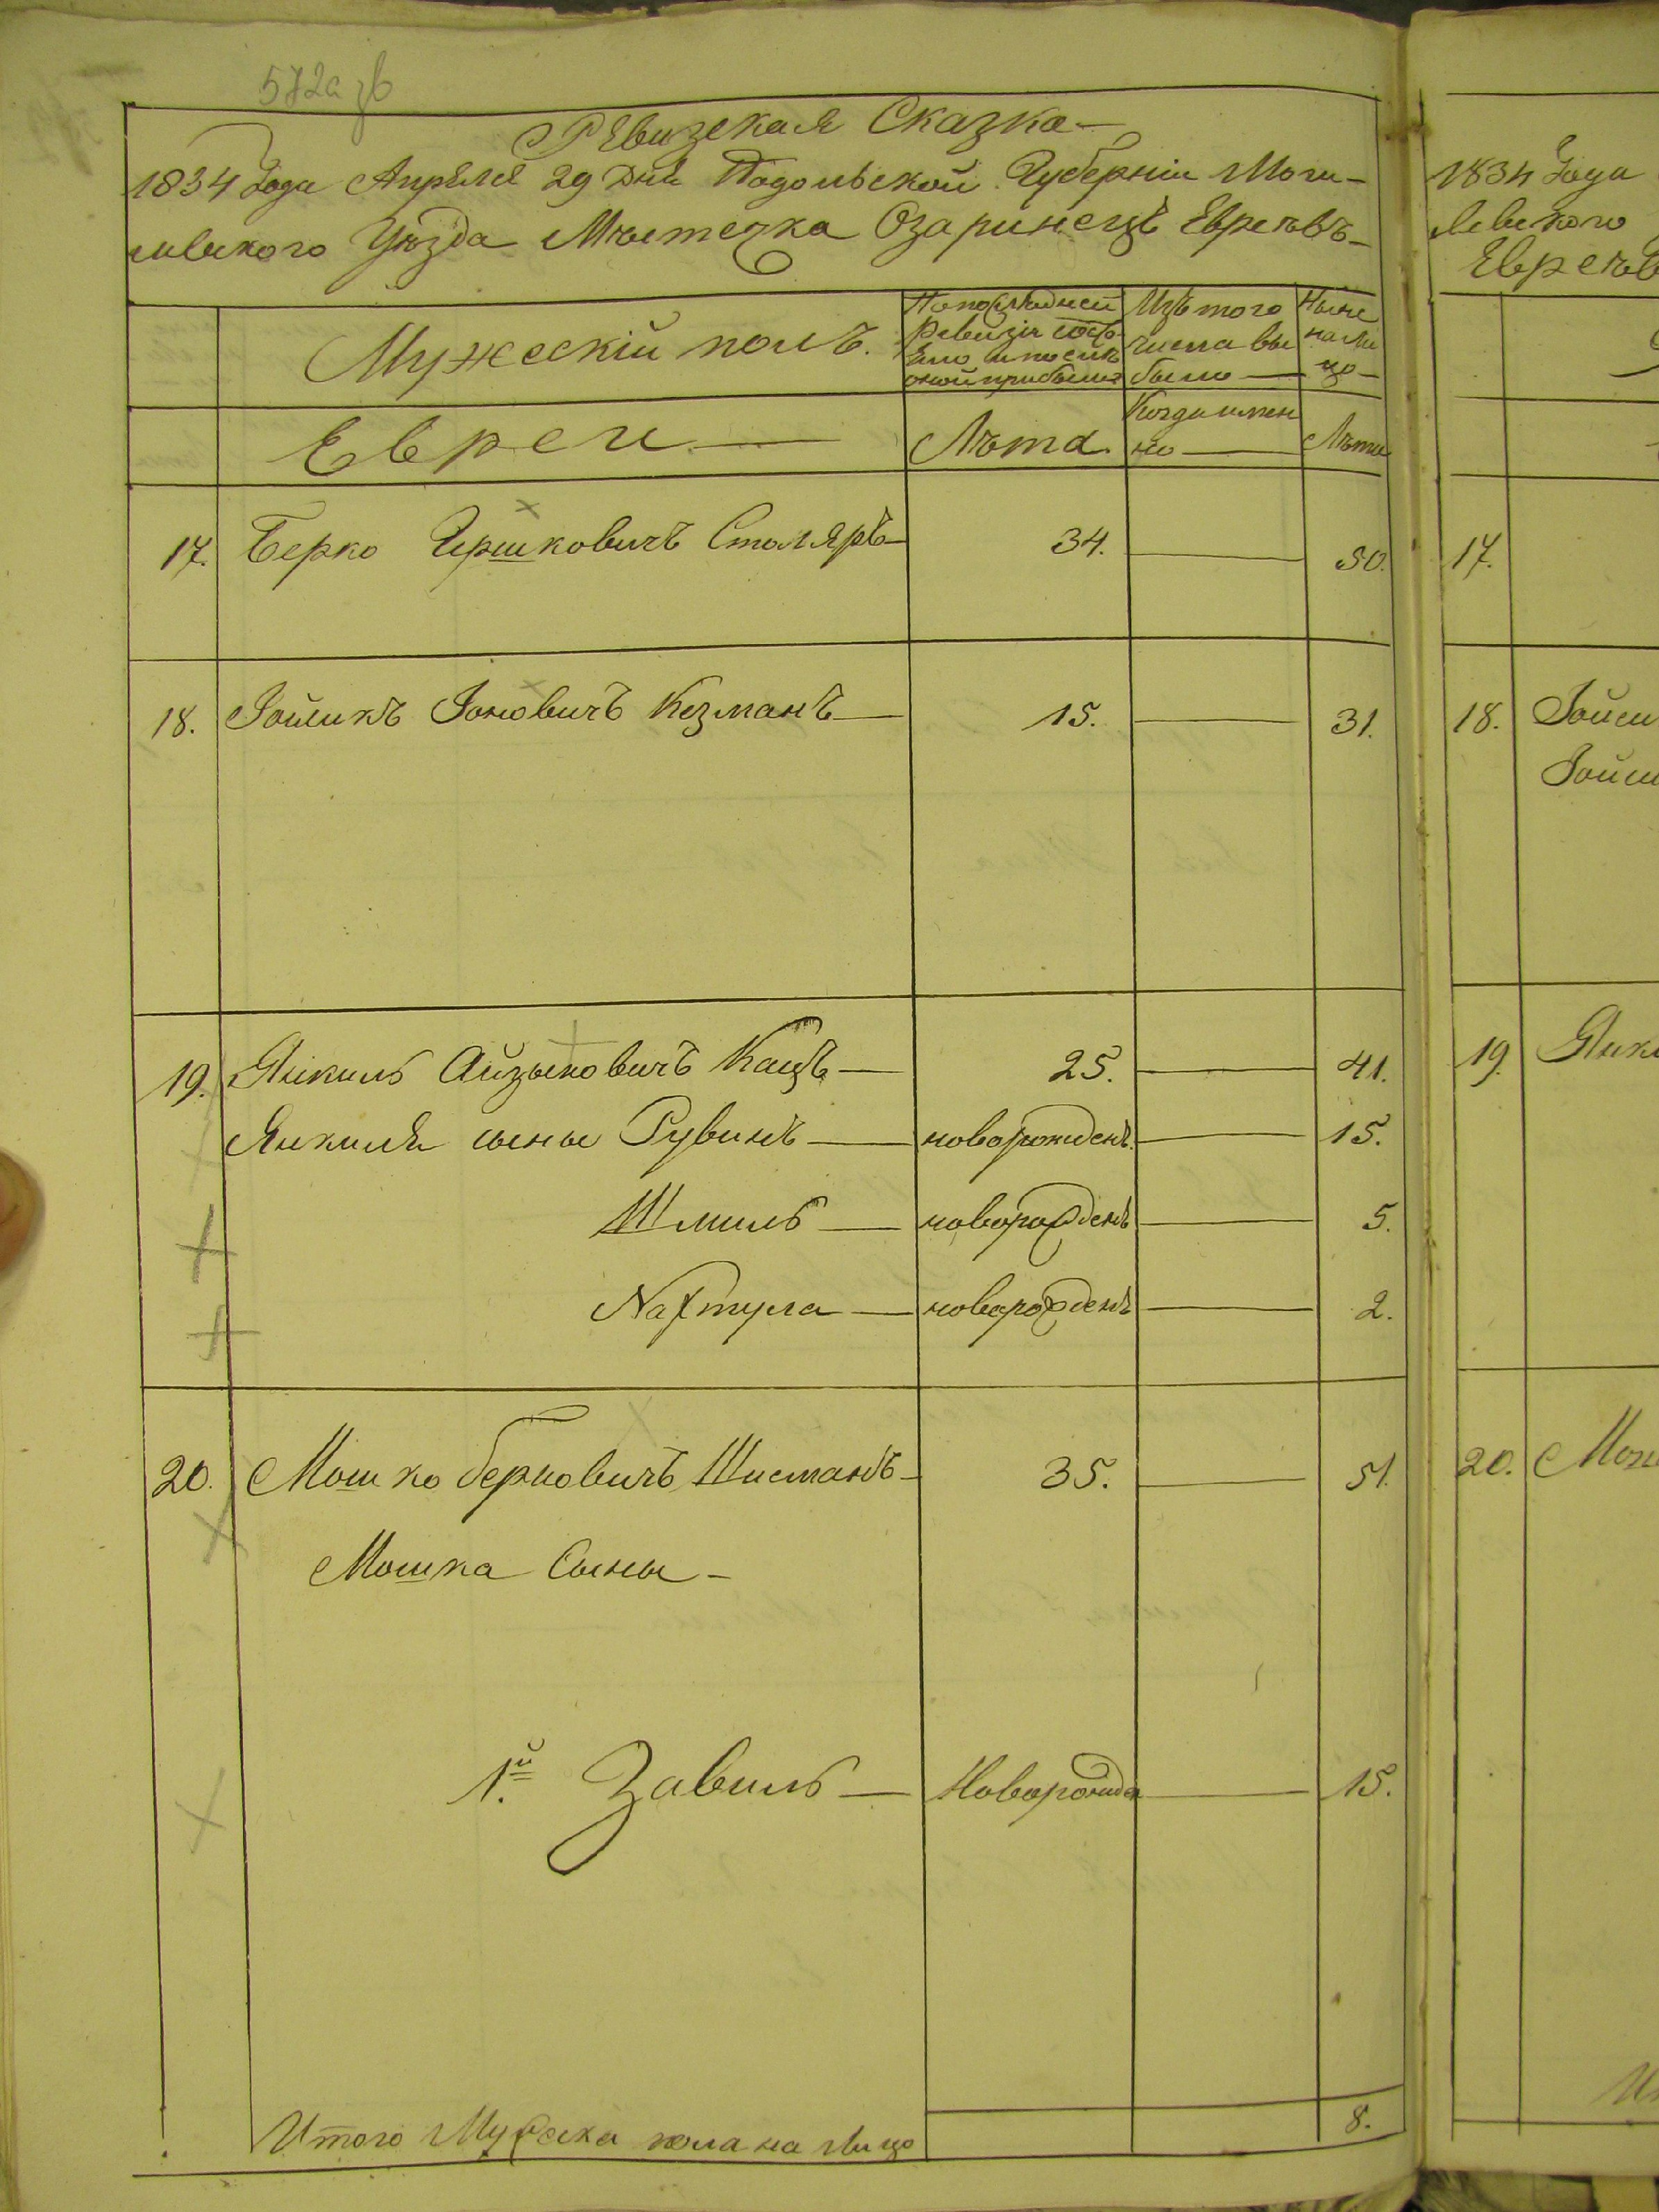 572а зв
Ревизская Сказка
1834 Года Апреля 29 Дня Подольской Губерніи Моги-
левского Уезда Местечка Озаринецъ Евреевъ
Мужескій полъ.
По последней Ревизіи состояло и после оной прибыло
Изъ того числа выбыло
Ныне на лицо
Евреи
Лета
Когда именно
Лета
17. Берко Гершковичъ Столяръ 34. 50.
18. Іойликъ Іоновичъ Кезманъ 15. 31.
19. Янкиль Айзыковичъ Кацъ 25. 41.
Янкиля сыны Рувинъ новорожденъ 15.
Шмиль новорожденъ 5.
Нафтула новорожденъ 2.
20. Мошко Берковичъ 35. 51.
Мошка Сыны
1.й Завиль Новорожде 15.
Итого Мужеска пола на лицо 8.
1834 Года
левского
Евреев
17.
18. Іойли
Іойли
19. Янки
20. Мош